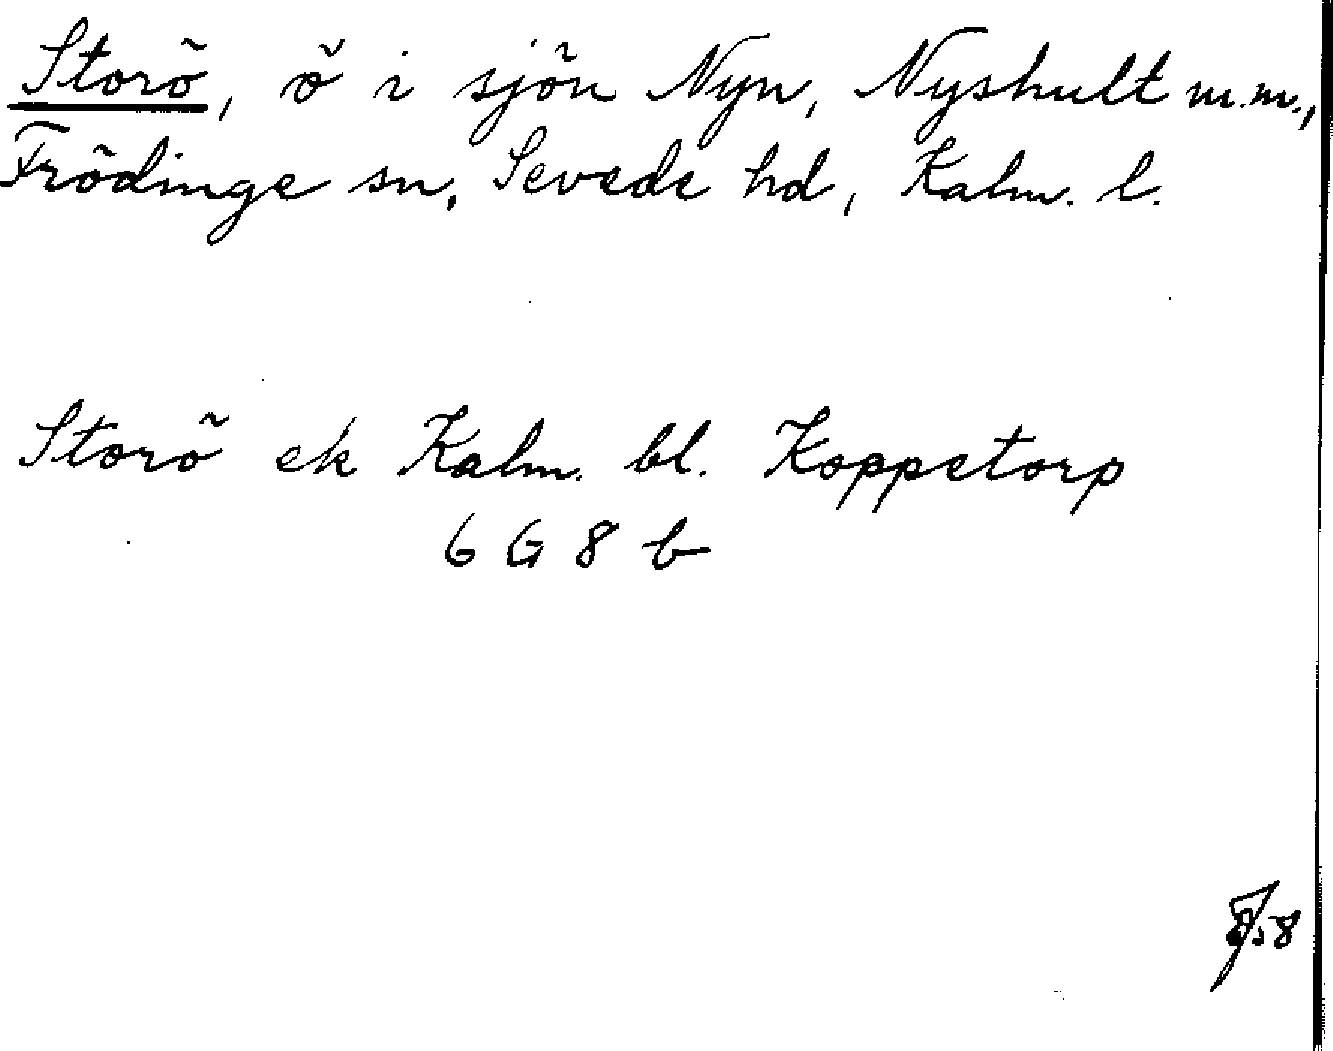 Storö, ö i sjön Nyn, Nyshult m.m.,
Frödinge sn, Sevede hd, Kalm. l.
Storö ek Kalm. bl. Koppetorp
6 G 8 b